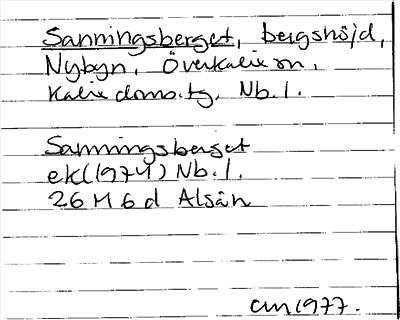 Sanningsberget, bergshöjd,
Nybyn, Överkalix sn,
Kalix doms.tg, Nb.l.
Sanningsberget
ek(1974) Nb.l.
26 M 6 d Alsån
am1977.